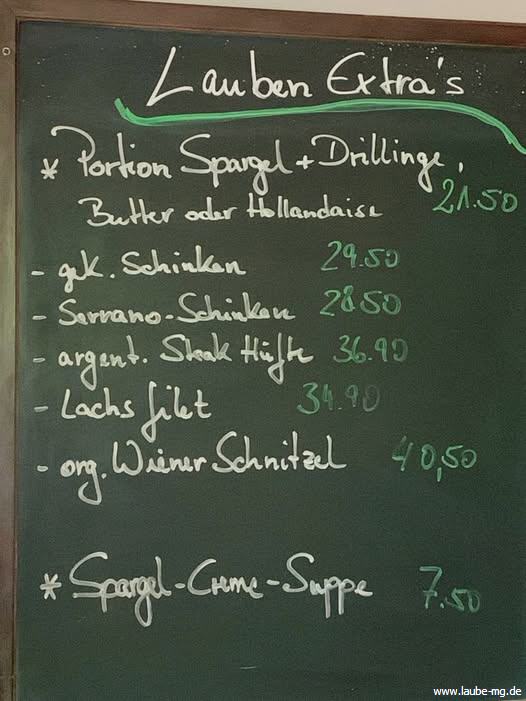 Lauben Extra's
* Portion Spargel + Drillinge,
Butter oder Hollandaise 21.50
- gek. Schinken 29.50
- Serrano-Schinken 28.50
- argent. Steak Hüfte 36.90
- Lachsfilet 34.90
- org. Wiener Schnitzel 40,50
* Spargel-Creme-Suppe 7.50
www.laube-mg.de